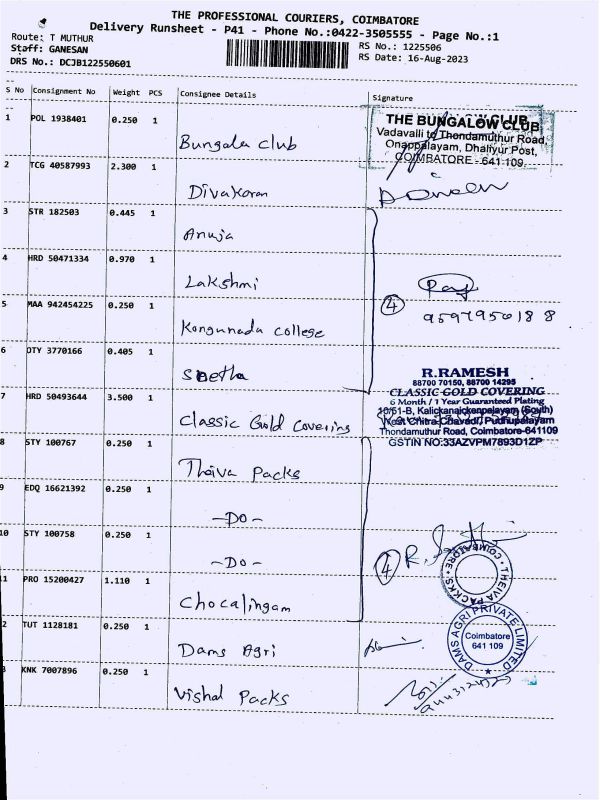 THE PROFESSIONAL COURIERS, COIMBATORE
Delivery Runsheet - P41 - Phone No.:0422-3505555 - Page No.:1
Route: T MUTHUR
Staff: GANESAN
DRS No.: DCJB122550601
RS No.: 1225506
RS Date: 16-Aug-2023
S No Consignment No Weight PCS Consignee Details Signature
1 POL 1938401 0.250 1 Bungala Club
THE BUNGALOW CLUB,
Vadavalli to Thondamuthur Road,
Onappalayam, Dhaliyur Post,
COIMBATORE - 641 109.
2 TCG 40587993 2.300 1 Divakaran
3 STR 182503 0.445 1 Anuja
4 HRD 50471334 0.970 1 Lakshmi
5 MAA 942454225 0.250 1 Kongunada college
4
9597950188
6 OTY 3770166 0.405 1 Seetha
7 HRD 50493644 3.500 1 Classic Gold Covering
R.RAMESH
88700 70150, 88700 14295
CLASSIC GOLD COVERING
6 Month / 1 Year Guaranteed Plating
16/51-B, Kalickanaickenpalayam (South)
West Chitra Chavadi, Pudhupalayam
Thondamuthur Road, Coimbatore-641109
GSTIN NO:33AZVPM7893D1ZP
8 STY 100767 0.250 1 Theiva Packs
9 EDQ 16621392 0.250 1 -Do-
10 STY 100758 0.250 1 -Do-
4
THEIVA PACKS
COIMBATORE
11 PRO 15200427 1.110 1 Chocalingam
2 TUT 1128181 0.250 1 Dams Agri
DAMS AGRI PRIVATE LIMITED
Coimbatore
641 109
3 KNK 7007896 0.250 1 Vishal Packs